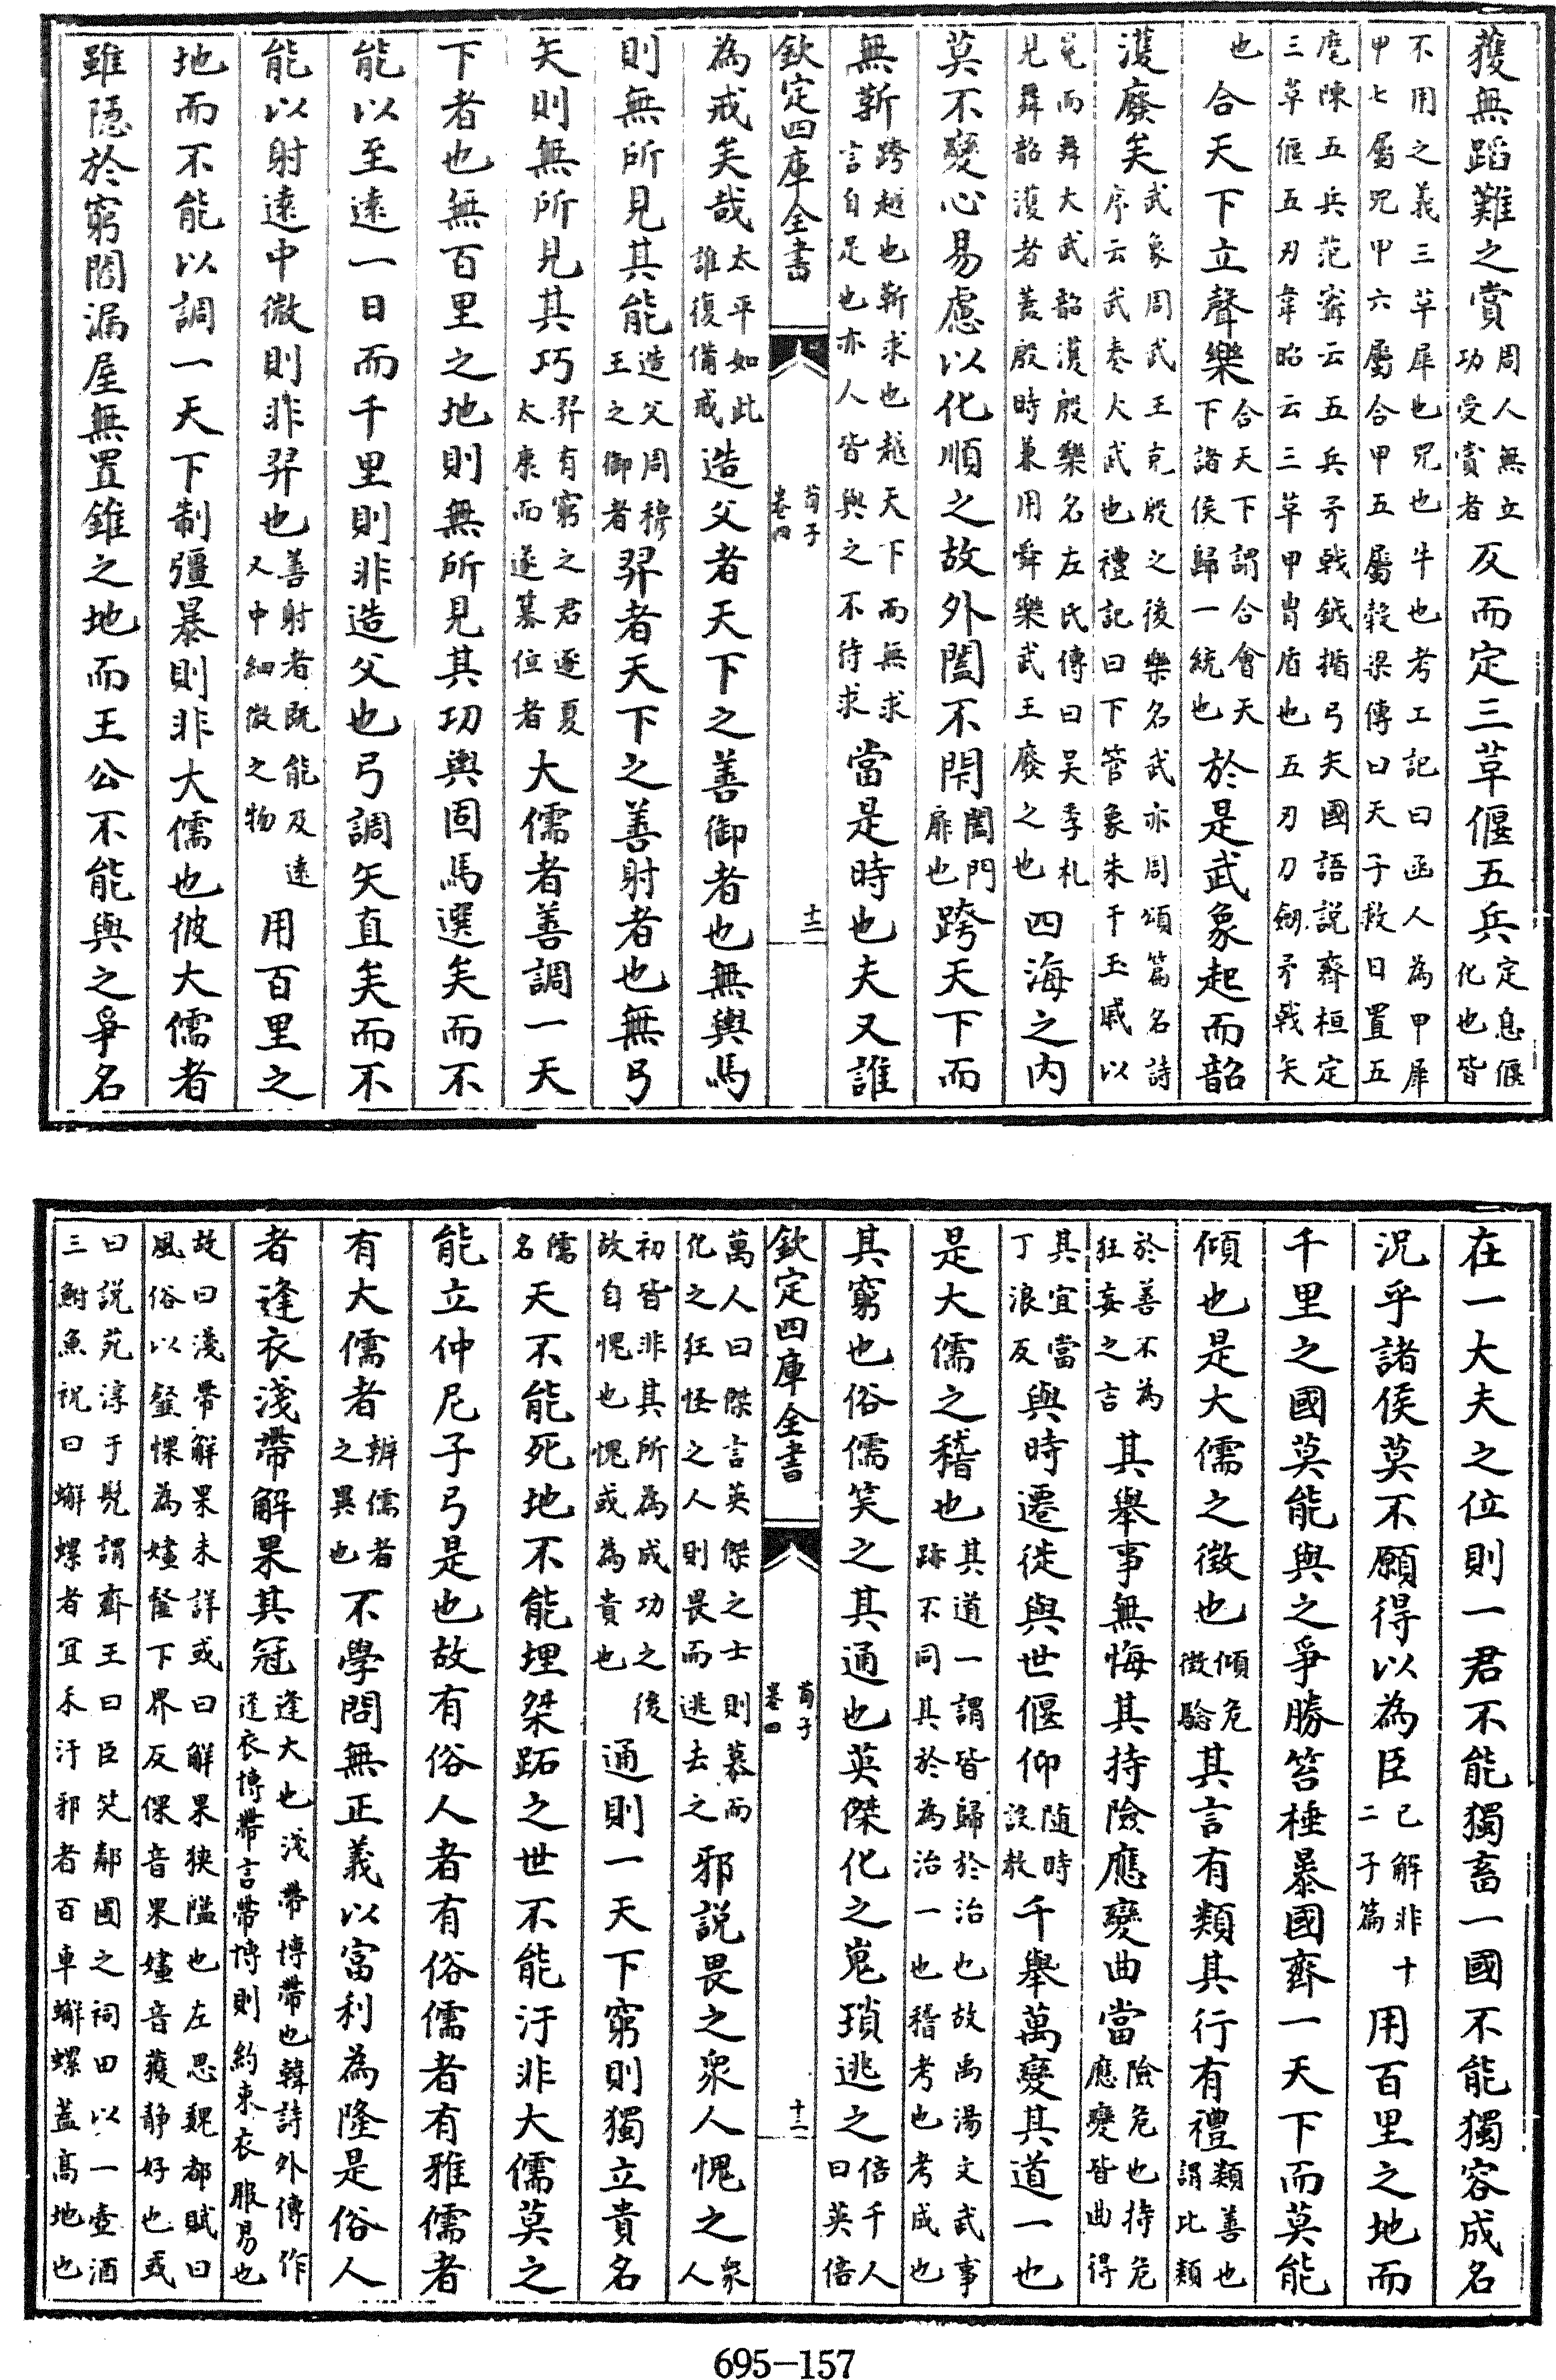 獲無蹈難之賞周人無立功受賞者反而定三革偃五兵定息偃化也皆
不用之義三革犀也兕也牛也考工記曰函人為甲犀甲七屬兕甲六屬合甲五屬榖梁傳曰天子救日置五
麾陳五兵范甯云五兵矛㦸鉞楯弓矢國語說齊桓定三革偃五刃韋昭云三革甲胄盾也五刃刀劔矛㦸矢
也合天下立聲樂合天下謂合會天下諸侯歸一統也於是武象起而韶
濩廢矣武象周武王克殷之後樂名武亦周頌篇名詩序云武奏大武也禮記曰下管象朱干玉戚以
冕而舞大武韶濩殷樂名左氏傳曰吴季札見舞韶濩者蓋殷時兼用舜樂武王廢之也四海之内
莫不變心易慮以化順之故外闔不閉闔門扉也跨天下而
無靳跨越也靳求也越天下而無求言自足也亦人皆與之不待求當是時也夫又誰
欽定四庫全書 荀子卷四
為戒矣哉太平如此誰復備戒造父者天下之善御者也無輿馬
則無所見其能造父周穆王之御者羿者天下之善射者也無弓
矢則無所見其巧羿有窮之君逐夏太康而遂簒位者大儒者善調一天
下者也無百里之地則無所見其功輿固馬選矣而不
能以至遠一日而千里則非造父也弓調矢直矣而不
能以射遠中微則非羿也善射者既能及遠又中細微之物用百里之
地而不能以調一天下制彊暴則非大儒也彼大儒者
雖隱於窮閻漏屋無置錐之地而王公不能與之爭名
在一大夫之位則一君不能獨畜一國不能獨容成名
況乎諸侯莫不願得以為臣已解非十二子篇用百里之地而
千里之國莫能與之爭勝笞棰暴國齊一天下而莫能
傾也是大儒之徴也傾危徴驗其言有類其行有禮類善也謂比類
於善不為狂妄之言其舉事無悔其持險應變曲當險危也持危應變皆曲得
其宜當丁浪反與時遷徙與世偃仰随時設教千舉萬變其道一也
是大儒之稽也其道一謂皆歸於治也故禹湯文武事跡不同其於為治一也稽考也考成也
其窮也俗儒笑之其通也英傑化之嵬瑣逃之倍千人曰英倍
欽定四庫全書 荀子卷四 十二
萬人曰傑言英傑之士則慕而化之狂怪之人則畏而逃去之邪說畏之衆人愧之衆人
初皆非其所為成功之後故自愧也愧或為貴也通則一天下窮則獨立貴名
儒名天不能死地不能埋桀跖之世不能汙非大儒莫之
能立仲尼子弓是也故有俗人者有俗儒者有雅儒者
有大儒者辨儒者之異也不學問無正義以富利為隆是俗人
者逢衣淺帶解果其冠逢大也淺帶博帶也韓詩外傳作逢衣博帶言帶博則約束衣服易也
故曰淺帶解果未詳或曰解果狹隘也左思魏都賦曰風俗以韰惈為嫿韰下界反惈音果嫿音獲静好也或
曰說苑淳于髡謂齊王曰臣笑鄰國之祠田以一壺酒三鮒魚祝曰蠏螺者宜禾汙邪者百車蠏螺蓋髙地也
695-157